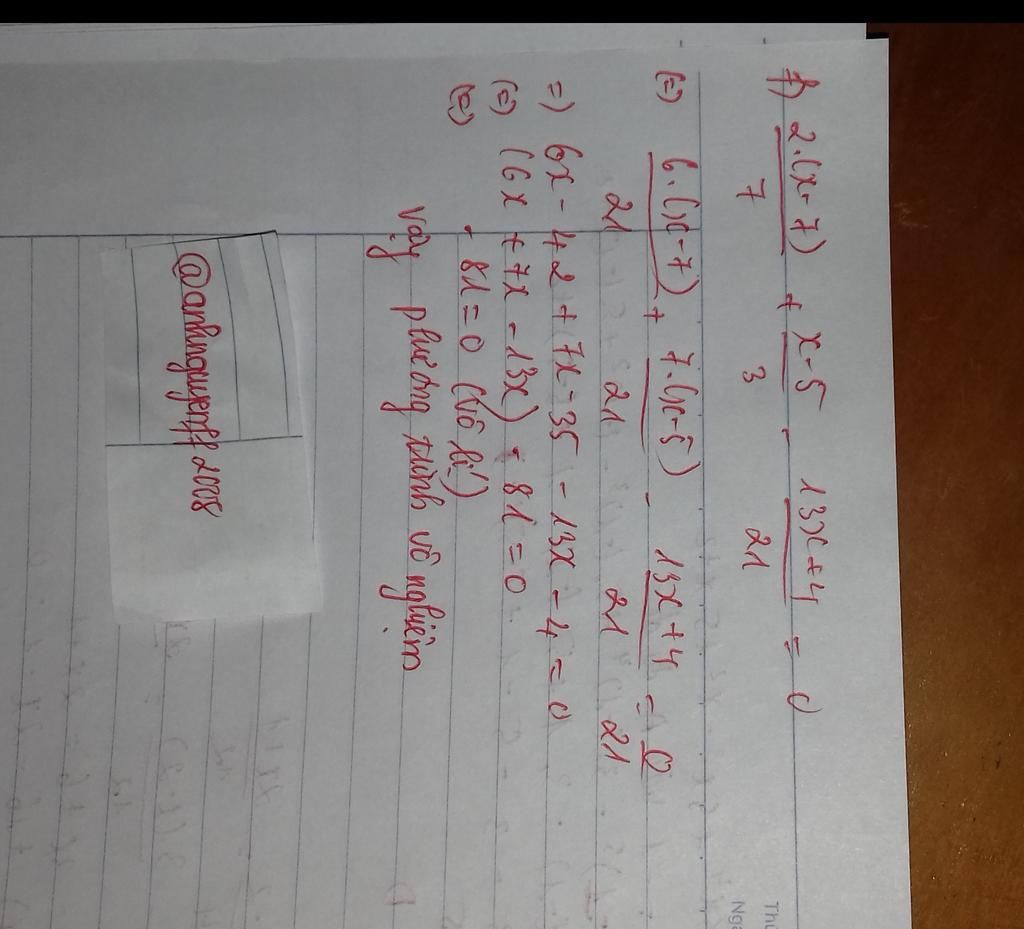 f) 2.(x-7)/7 + x-5/3 - 13x+4/21 = 0
(=) 6.(x-7)/21 + 7.(x-5)/21 - 13x+4/21 = 0/21
=) 6x - 42 + 7x - 35 - 13x - 4 = 0
(=) (6x + 7x - 13x) - 81 = 0
(=) - 81 = 0 (vô lí)
Vậy phương trình vô nghiệm